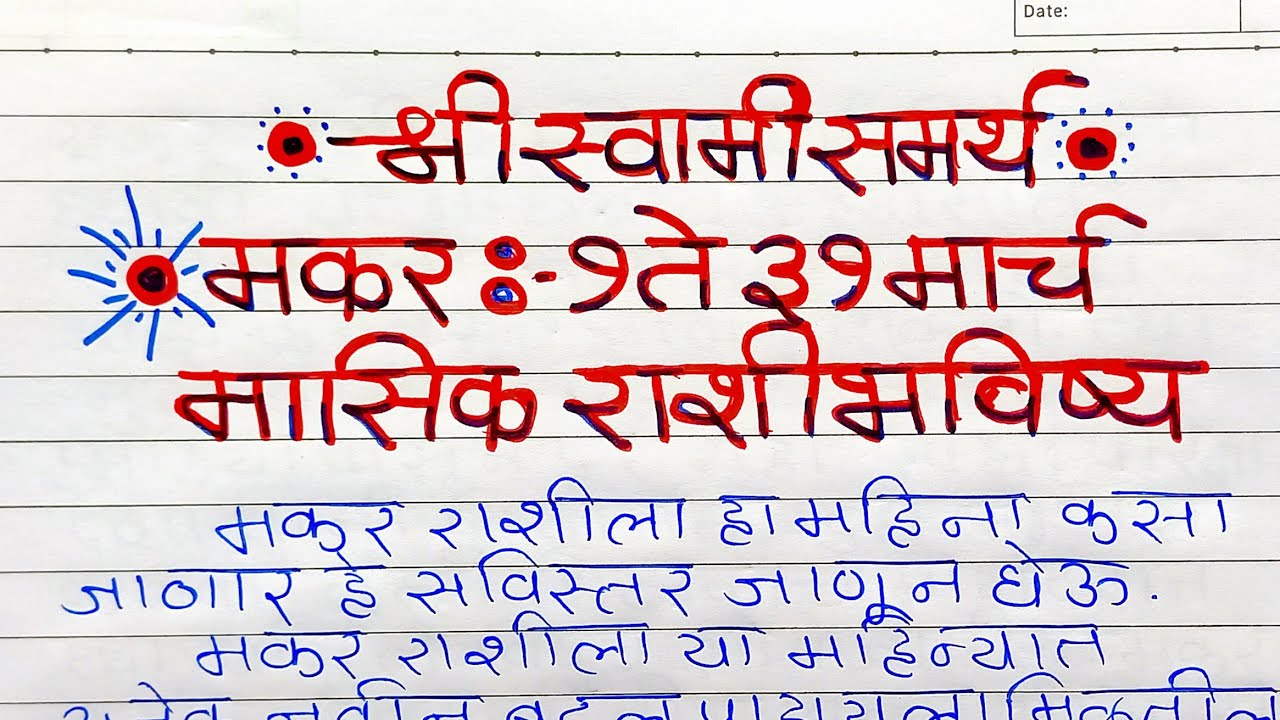 Date:
श्री स्वामी समर्थ
मकर :- १ ते ३१ मार्च
मासिक राशीभविष्य
मकर राशीला हा महिना कसा
जाणार हे सविस्तर जाणून घेऊ.
मकर राशीला या महिन्यात
अनेक नवीन बदल पाहायला मिळतील